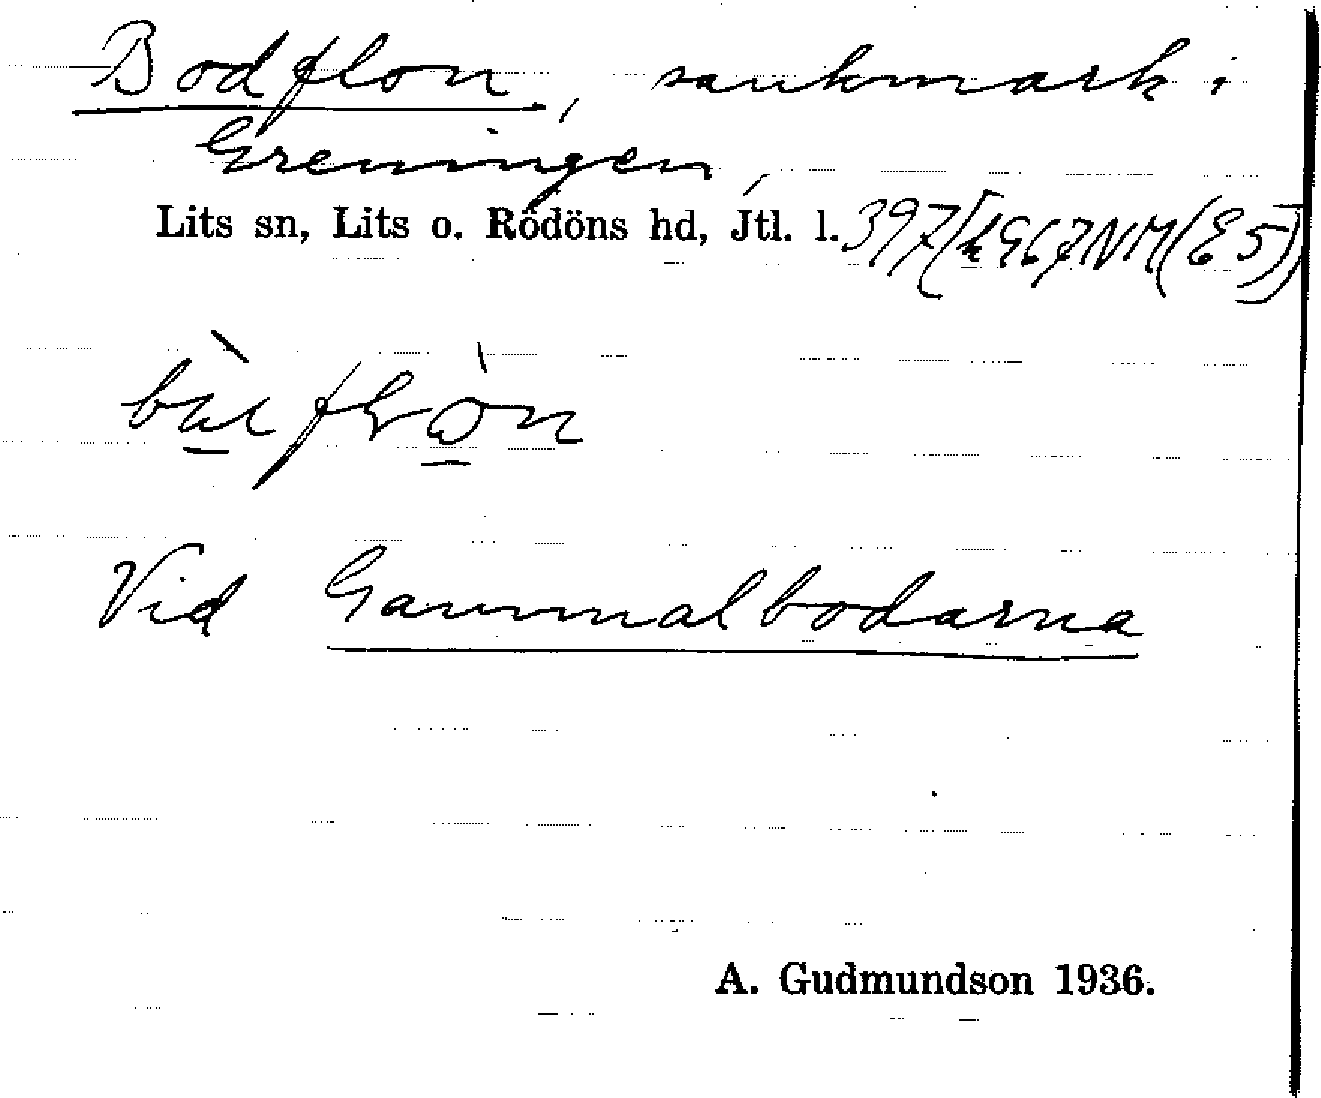 Bodflon, sankmark i
Greningen,
Lits sn, Lits o. Rödöns hd, Jtl. l.
Vid Gammalbodarna
A. Gudmundson 1936.